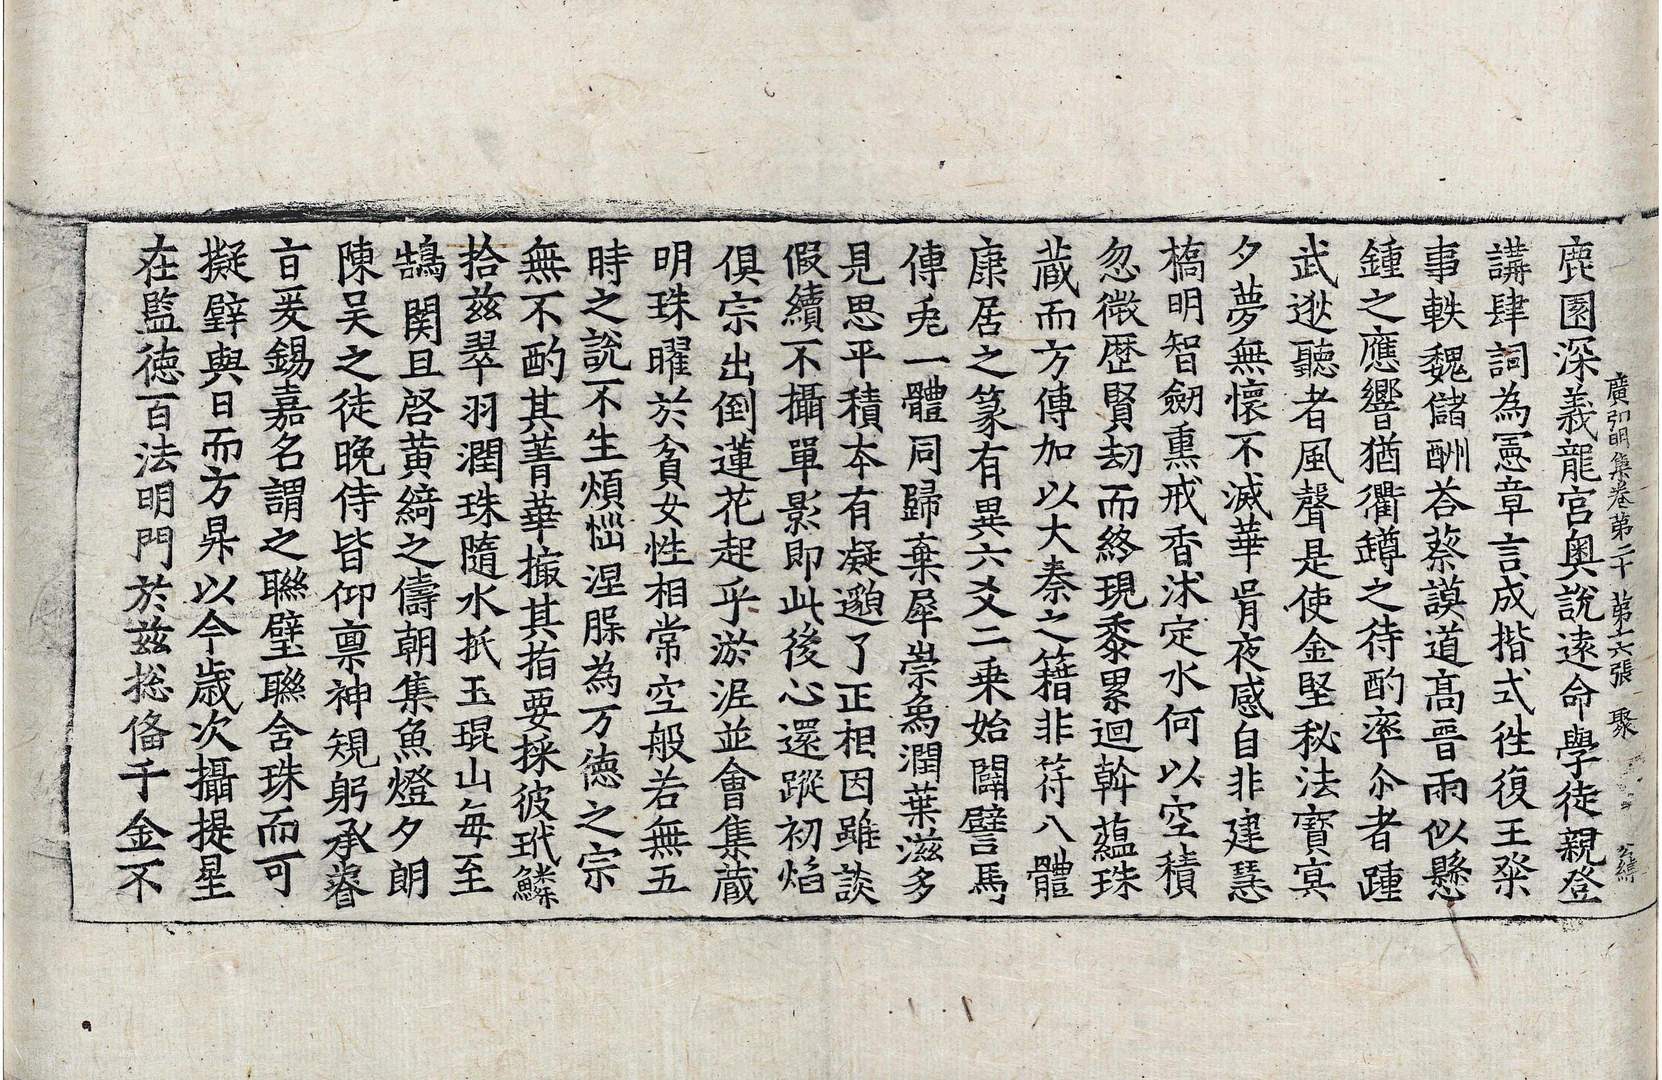 廣弘明集卷第二十 第十六張 聚
鹿園深義龍宮奧說遠命學徒親登
講肆詞為憲章言成揩式徃復王粲
事軼魏儲酬荅蔡謨道髙晉兩似懸
鍾之應響猶衢罇之待酌率尒者踵
武逖聽者風聲是使金堅秘法寳㝠
夕夢無懷不滅華胥夜感自非建慧
橋明智劒熏戒香沐定水何以空積
忽微歴賢劫而終現黍累迴斡蘊珠
蔵而方傳加以大秦之籍非符八體
康居之篆有異六爻二乗始闢譬馬
傳兎一體同歸棄犀崇為潤葉滋多
見思平積夲有凝邈了正相因雖談
假續不攝單影即此後心還蹤初焰
俱宗出倒蓮花起乎淤泥並會集蔵
明珠曜於貧女性相常空般若無五
時之說不生煩惱涅脲為万徳之宗
無不酌其菁華撮其㧖要採彼玳鱗
拾兹翠羽潤珠隨水抵玉琨山毎至
鵠関且啓黄綺之儔朝集魚燈夕朗
陳吴之徒晚侍皆仰禀神䂓躬承𧫓
㫖爰錫嘉名謂之聯璧聯含珠而可
擬璧與日而方昇以今歳次攝提星
在監徳百法明門於兹揔俻千金不